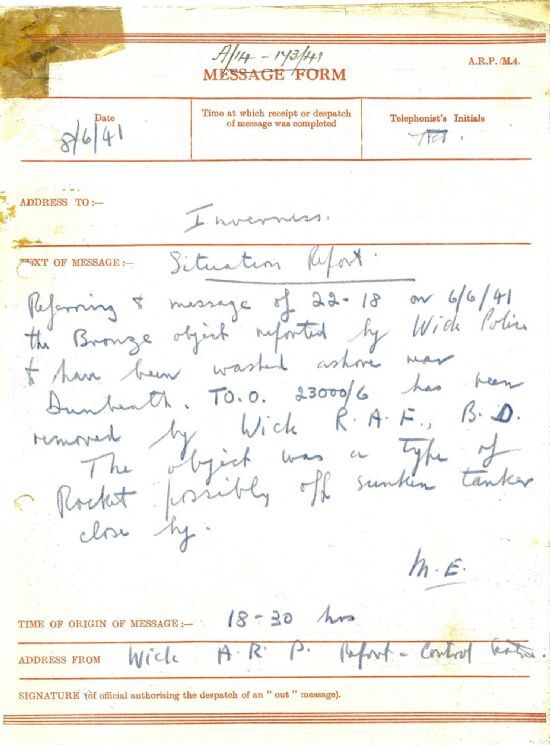 A/14 - 173/41
MESSAGE FORM
A.R.P./M.4.
Date
8/6/41
Time at which receipt or despatch
of message was completed
Telephonist's Initials
ADDRESS TO:—
Inverness.
TEXT OF MESSAGE:—
Situation Report.
Referring to message of 22-18 on 6/6/41
the Bronze object reported by Wick Police
to have been washed ashore near
Dunbeath. T.O.O. 23000/6 has been
removed by Wick R.A.F., B.D.
The object was a type of
Rocket possibly off sunken tanker
close by.
M.E.
TIME OF ORIGIN OF MESSAGE:—
18-30 hrs
ADDRESS FROM Wick A.R.P. Report - Control
SIGNATURE (of official authorising the despatch of an "out" message).